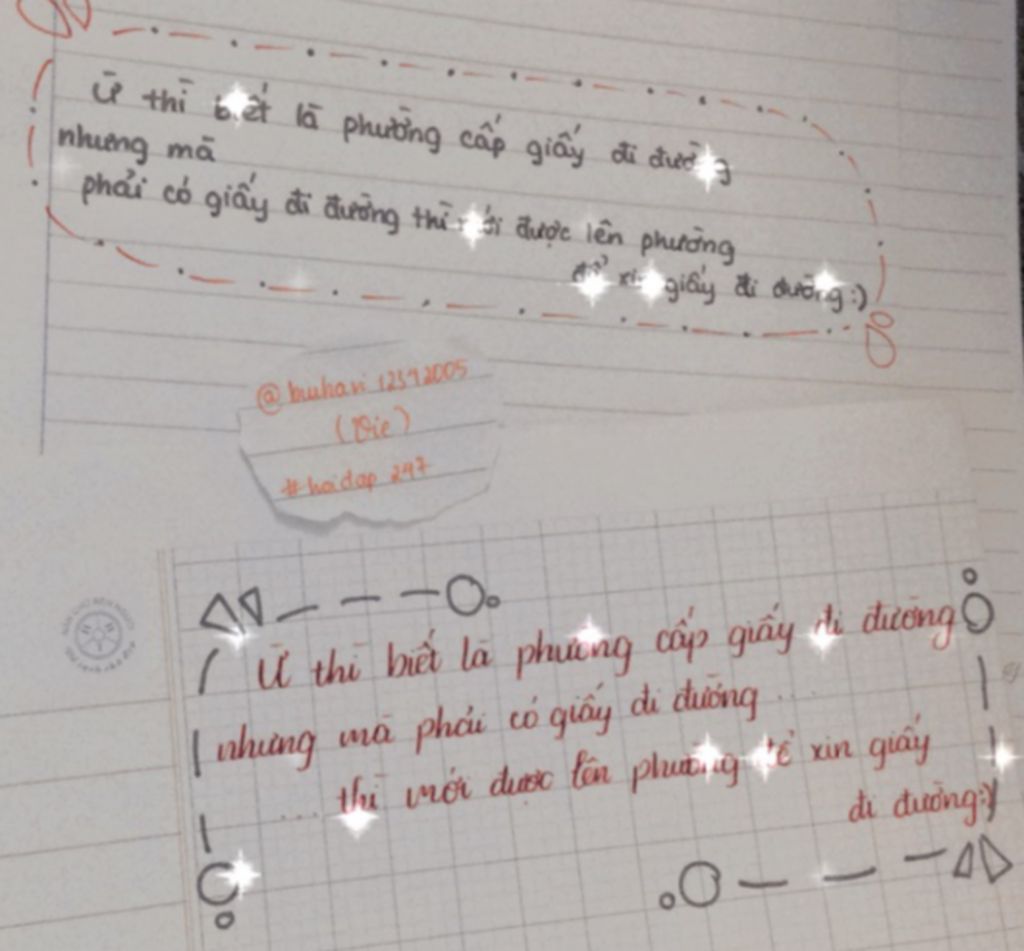 Ừ thì biết là phường cấp giấy đi đường
nhưng mà
phải có giấy đi đường thì mới được lên phường
để xin giấy đi đường:)
(Vie)
#hoidap 247
Ừ thì biết là phường cấp giấy đi đường
nhưng mà phải có giấy đi đường ...
... thì mới được lên phường để xin giấy
đi đường:)